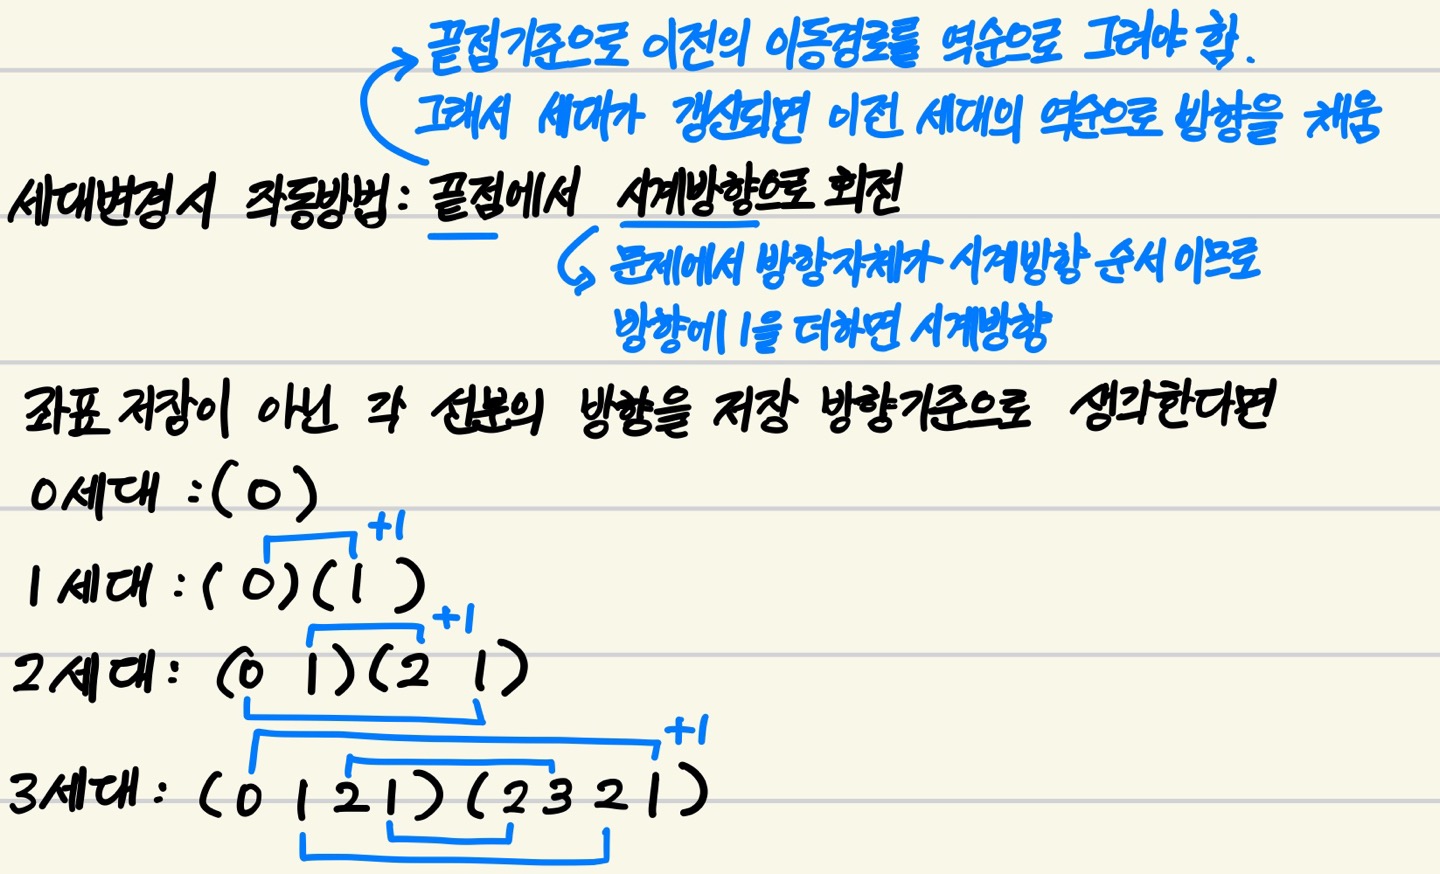 끝점기준으로 이전의 이동경로를 역순으로 그려야 함.
그래서 세대가 갱신되면 이전 세대의 역순으로 방향을 채움
세대변경시 작동방법: 끝점에서 시계방향으로 회전
문제에서 방향자체가 시계방향 순서 이므로
방향에 1을 더하면 시계방향
좌표 저장이 아닌 각 선분의 방향을 저장 방향기준으로 생각한다면
0세대 :(0)
+1
1세대 :(0)(1)
+1
2세대: (0 1)(2 1)
+1
3세대: (0 1 2 1)(2 3 2 1)